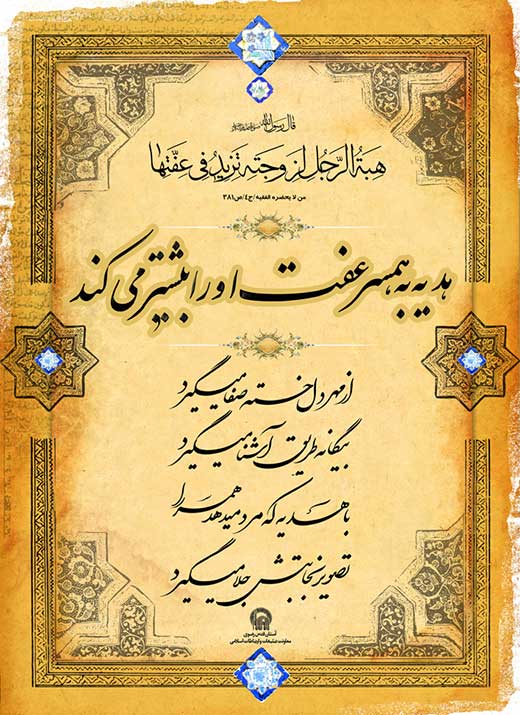 قال رسول الله صلی الله علیه وآله
هبة الرّجل لزوجته تزید في عفّتها
من لا یحضره الفقیه/ج۴/ص۳۸۱
هدیه به همسر عفت او را بیشتر می کند
از مهر دل خسته صفا میگیرد
بیگانه طریق آشنا میگیرد
با هدیه که مرد میدهد همسر را
تصویر نجابتش جلا میگیرد
آستان قدس رضوی
معاونت تبلیغات و ارتباطات اسلامی